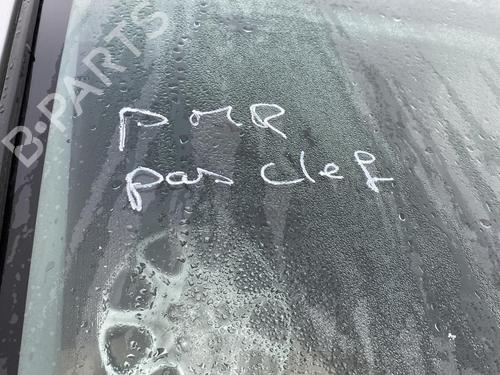 B-PARTS
pmR
pas clef